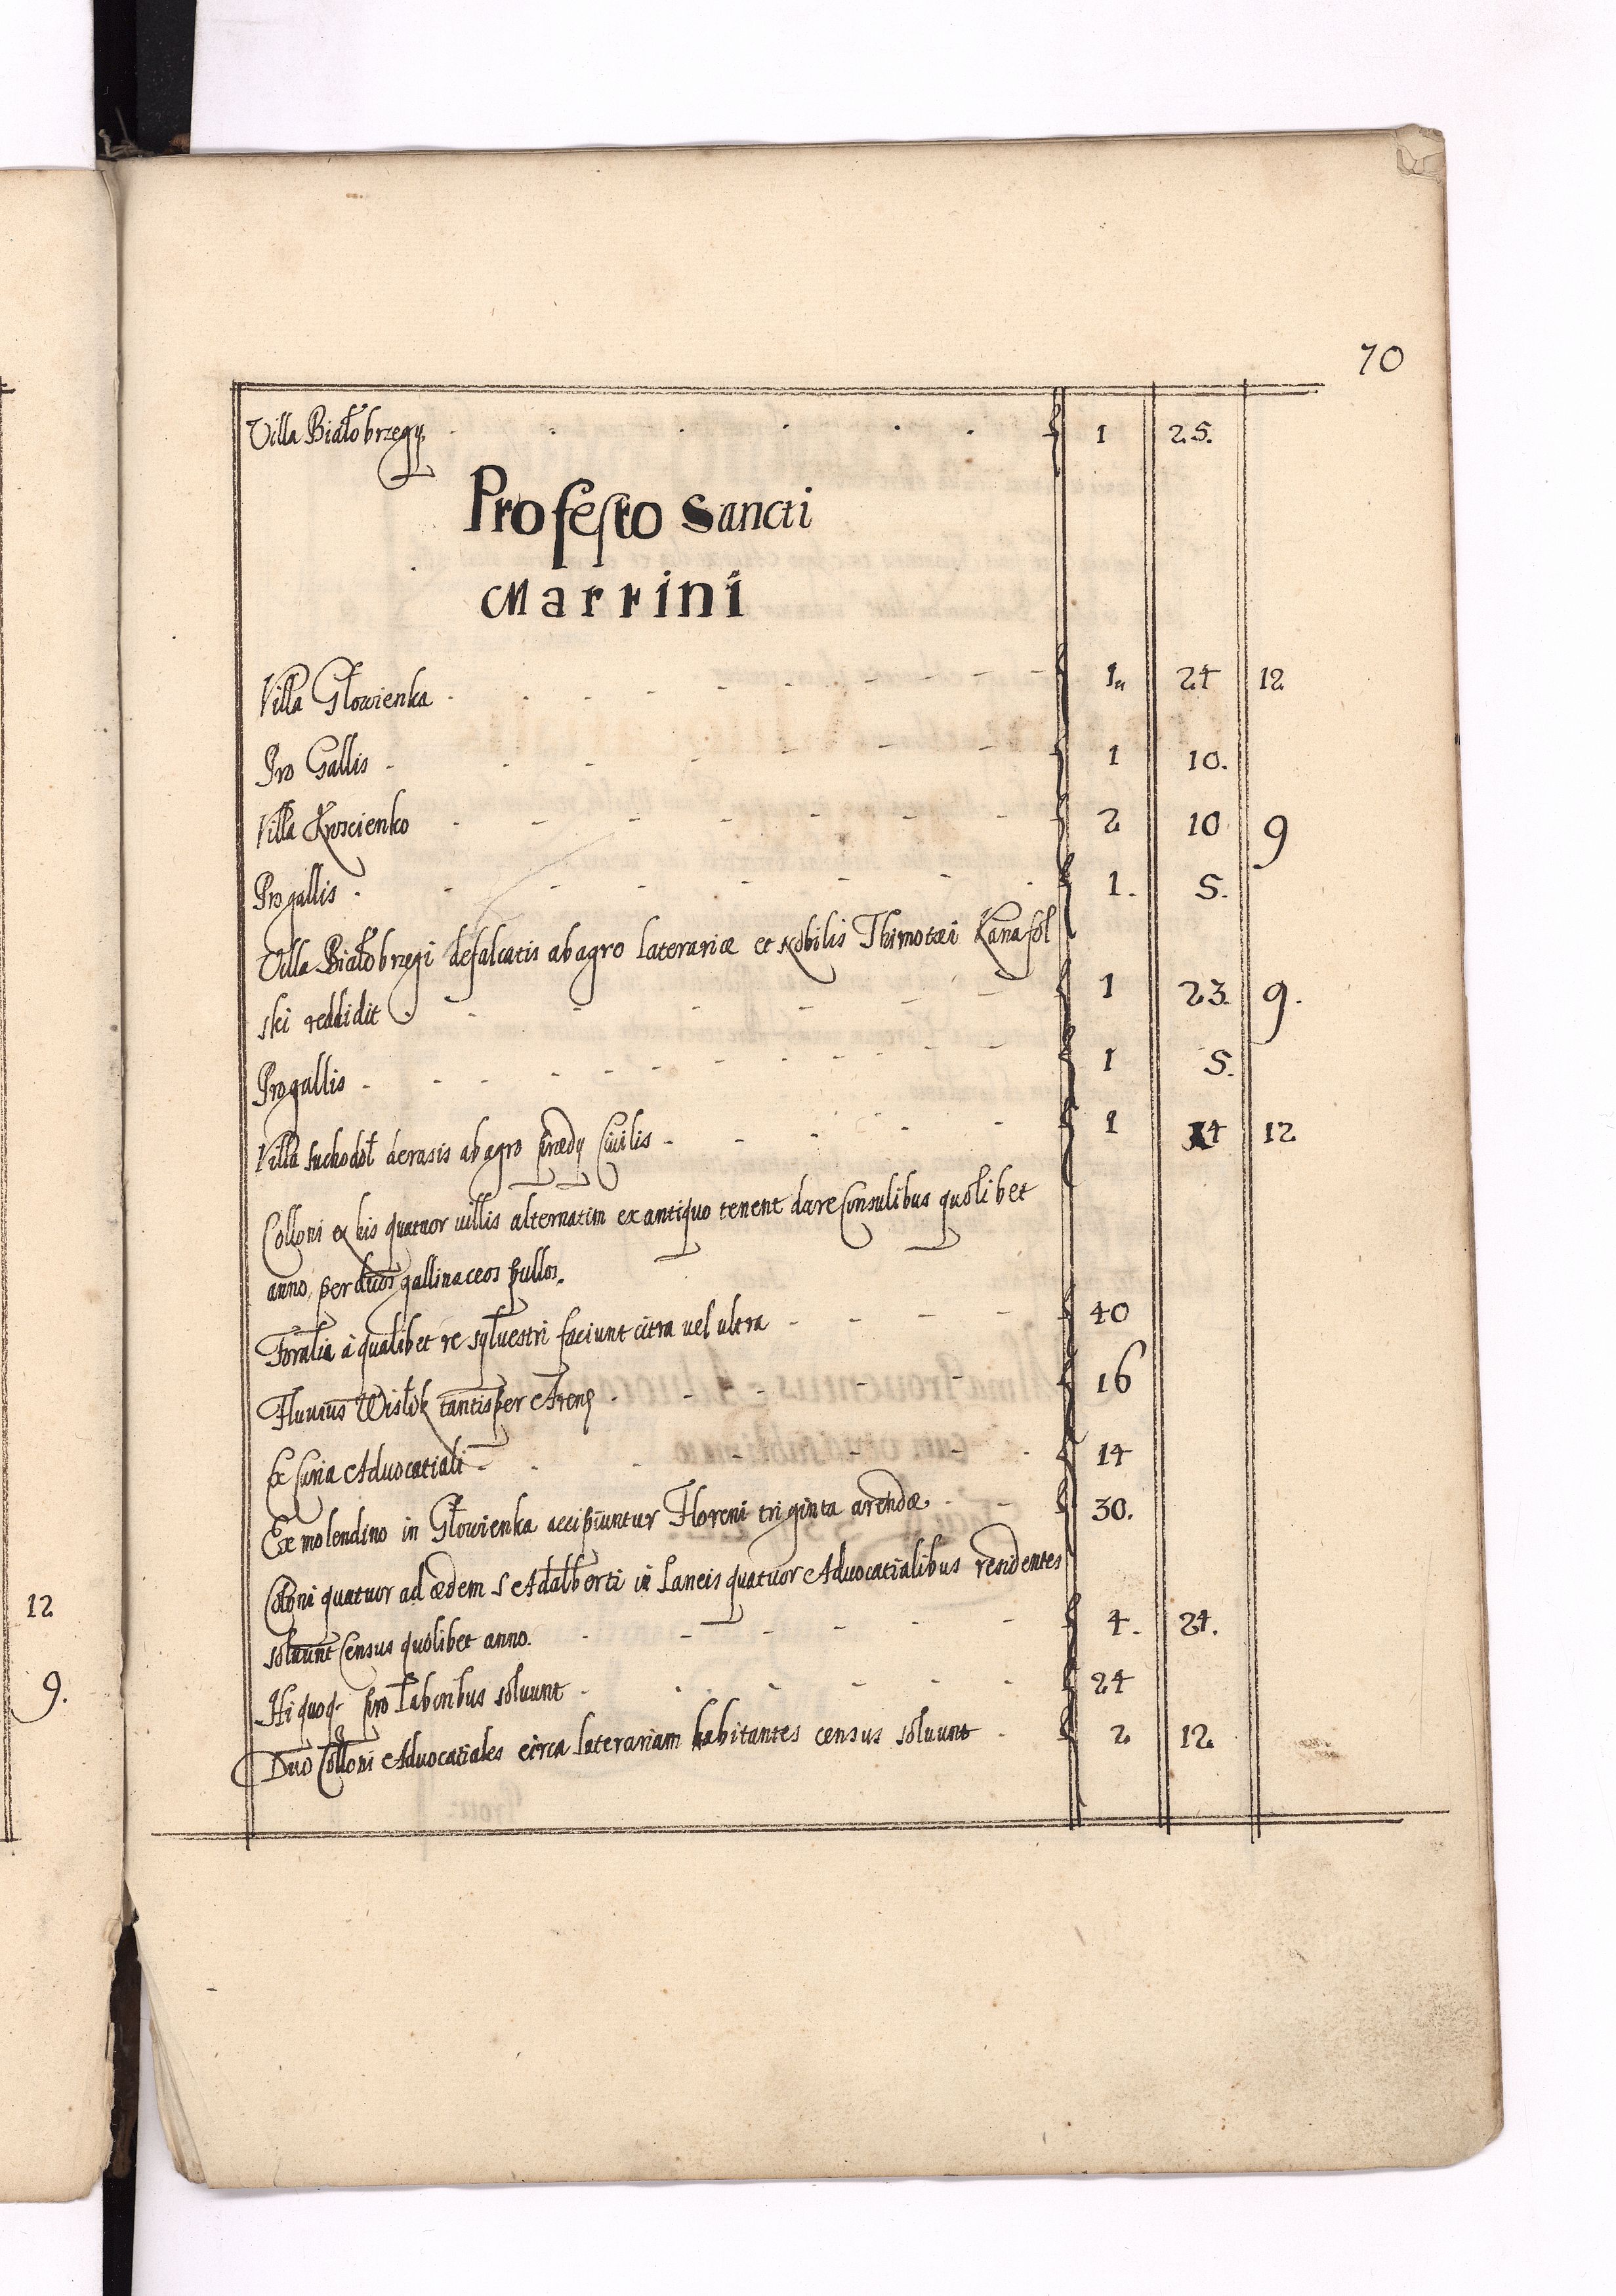 70
Villa Białobrzegy. 1 25.
Pro festo Sancti
Martini
Villa Głowienka 1. 24 12
Pro Gallis 1 10.
Villa Kroscienko 2 10 9
Pro gallis 1. 5.
Villa Białobrzegi defalcatis ab agro Laterariæ et Nobilis Thimotæi Kanafol
ski reddidit 1 23. 9.
Pro gallis 1 5.
Villa Suchodoł derasis ab agro prædy Ciuilis 1 14 12
Colloni ex his quatuor uillis alternatim ex antiquo tenent dare Consulibus quolibet
anno, per duos gallinaceos pullos.
Foralia à qualibet re syluestri faciunt citra uel ultra 40
Fluuius Wisłok tantisper 16
Ex Curia Aduocatiali 14
Ex molendino in Głowienka accipiuntur Floreni triginta arendæ. 30.
Coloni quatuor ad ædem S Adalberti in Laneis quatuor Aduocatialibus residentes
soluunt Census quolibet anno. 4. 24.
Hi quoq. pro Laboribus soluunt 24
Duo Colloni Aduocatiales circa laterariam habitantes census soluunt 2 12
12
9.